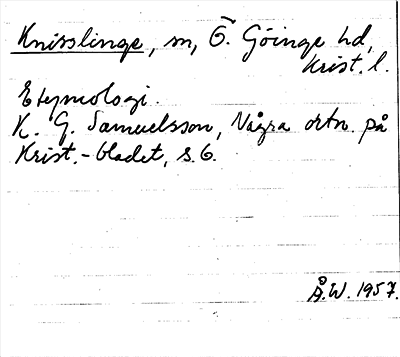 Knisslinge, m, Ö. Göinge hd,
Krist. l.
Etymologi.
K. G. Samuelsson, Några ortn. på
Krist.-bladet, s. 6.
Å.W. 1957.